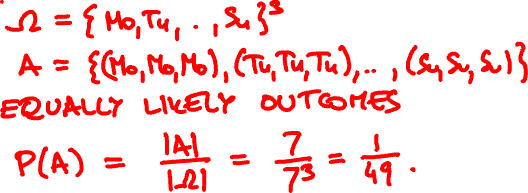 Ω = {Mo, Tu, .., Su}³
A = {(Mo, Mo, Mo), (Tu, Tu, Tu), .., (Su, Su, Su)}
EQUALLY LIKELY OUTCOMES
P(A) = |A| / |Ω| = 7 / 7³ = 1 / 49 .